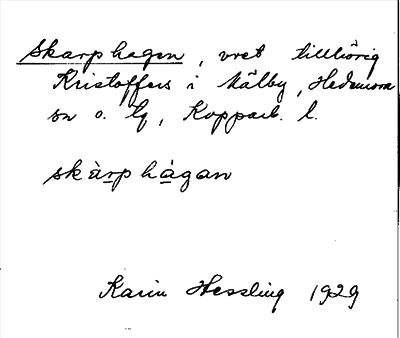 Skarphagen, vret tillhörig
Kristoffers i Mälby, Hedemora
sn o. tg, Kopparb. l.
skàrphàgan
Karin Hessling 1929